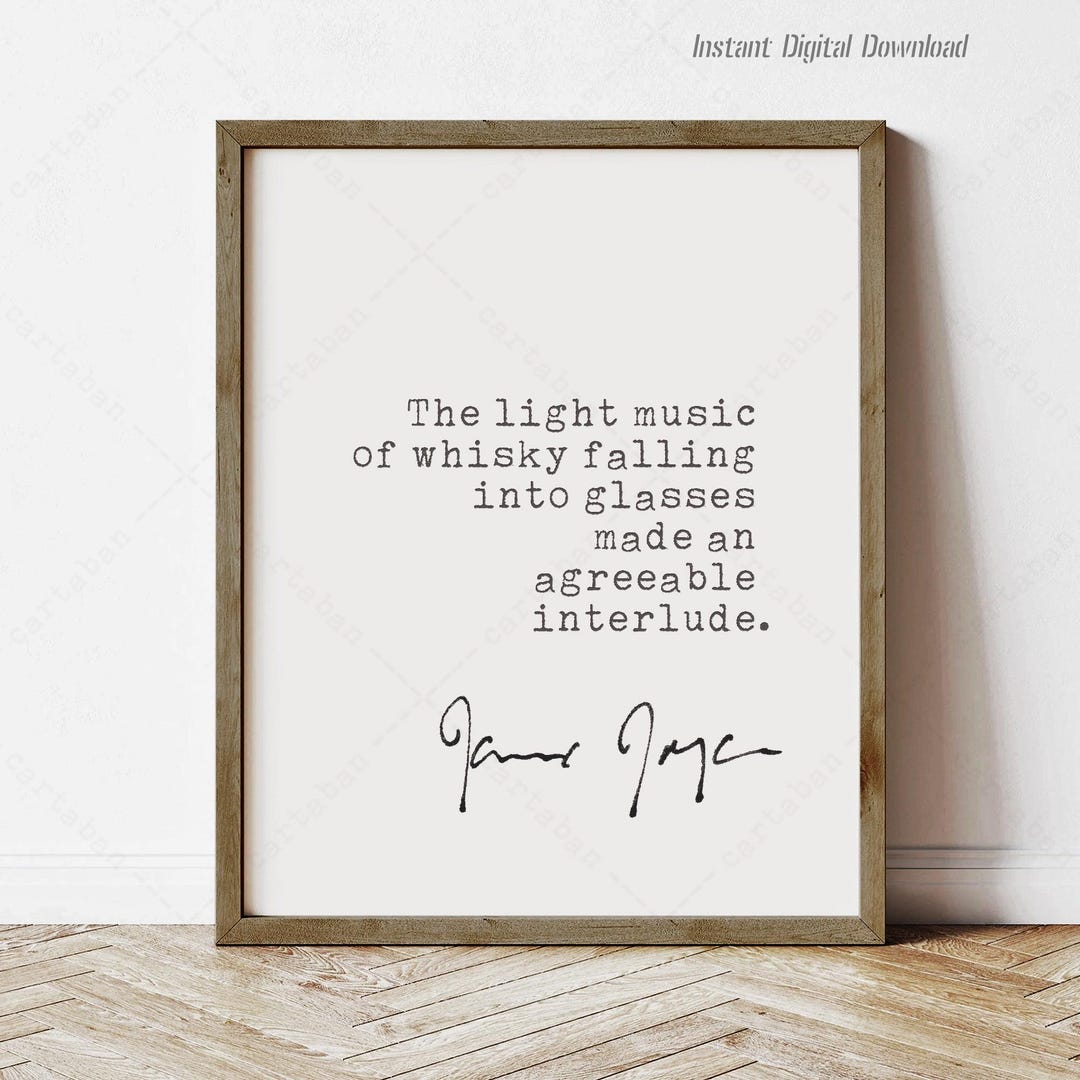 Instant Digital Download
The light music
of whisky falling
into glasses
made an
agreeable
interlude.
James Joyce
cartaban